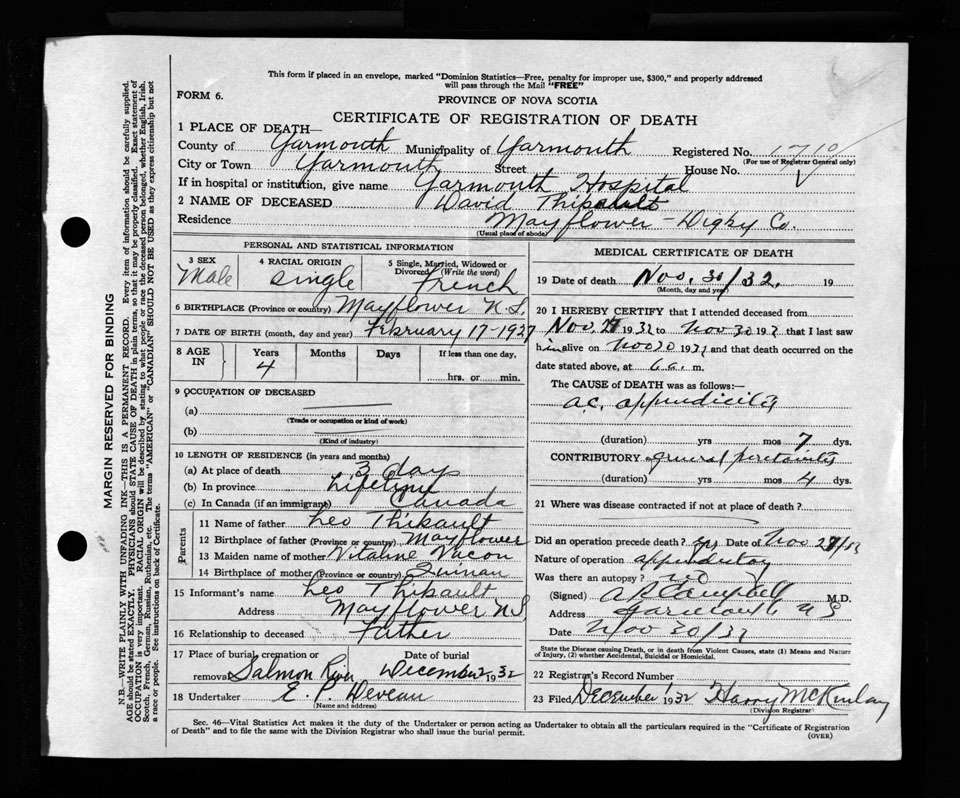 This form if placed in an envelope, marked "Dominion Statistics—Free, penalty for improper use, $300," and properly addressed
will pass through the Mail "FREE"
FORM 6.
PROVINCE OF NOVA SCOTIA
CERTIFICATE OF REGISTRATION OF DEATH
1 PLACE OF DEATH—
County of Yarmouth Municipality of Yarmouth Registered No. 1710
(For use of Registrar General only)
City or Town Yarmouth Street House No.
If in hospital or institution, give name Yarmouth Hospital
2 NAME OF DECEASED David Thibault
Residence Mayflower - Digby Co.
(Usual place of abode)
PERSONAL AND STATISTICAL INFORMATION
3 SEX 4 RACIAL ORIGIN 5 Single, Married, Widowed or
Divorced (Write the word)
Male single french
6 BIRTHPLACE (Province or country) Mayflower N.S.
7 DATE OF BIRTH (month, day and year) February 17-1927
8 AGE IN Years Months Days If less than one day,
4 hrs. or min.
9 OCCUPATION OF DECEASED
(a)
(Trade or occupation or kind of work)
(b)
(Kind of industry)
10 LENGTH OF RESIDENCE (in years and months)
(a) At place of death 3 days
(b) In province Lifetime
(c) In Canada (if an immigrant) Canada
Parents
11 Name of father Leo Thibault
12 Birthplace of father (Province or country) Mayflower
13 Maiden name of mother Vitaline Vacon
14 Birthplace of mother (Province or country) Quinan
15 Informant's name Leo Thibault
Address Mayflower N.S
16 Relationship to deceased Father
17 Place of burial, cremation or Date of burial
removal Salmon River December 2 1932
18 Undertaker E. P. Deveau
(Name and address)
MEDICAL CERTIFICATE OF DEATH
19 Date of death Nov. 30/32. 19
(Month, day and year)
20 I HEREBY CERTIFY that I attended deceased from
Nov. 1932 to Nov 30 193 that I last saw
him alive on Nov 30 193 and that death occurred on the
date stated above, at 6 a. m.
The CAUSE of DEATH was as follows:—
ac. appendicitis
(duration) yrs mos 7 dys.
CONTRIBUTORY general peritonitis
(duration) yrs mos 4 dys.
21 Where was disease contracted if not at place of death?
Did an operation precede death? yes Date of Nov
Nature of operation
Was there an autopsy? no
(Signed) Campbell M.D.
Address Yarmouth NS
Date Nov 30/32
State the Disease causing Death, or in death from Violent Causes, state (1) Means and Nature
of Injury, (2) whether Accidental, Suicidal or Homicidal.
22 Registrar's Record Number
23 Filed December 1 1932 Harry McKinlay
(Division Registrar)
Sec. 46—Vital Statistics Act makes it the duty of the Undertaker or person acting as Undertaker to obtain all the particulars required in the "Certificate of Registration
of Death" and to file the same with the Division Registrar who shall issue the burial permit.
(OVER)
MARGIN RESERVED FOR BINDING
N.B.—WRITE PLAINLY WITH UNFADING INK—THIS IS A PERMANENT RECORD. Every item of information should be carefully supplied.
AGE should be stated EXACTLY. PHYSICIANS should STATE CAUSE OF DEATH in plain terms, so that it may be properly classified. Exact statement of
OCCUPATION is very important. RACIAL ORIGIN will be described by stating to what people or race the deceased person belonged, whether English, Irish,
Scotch, French, German, Russian, Ruthenian, etc. The terms "AMERICAN" or "CANADIAN" SHOULD NOT BE USED as they express citizenship but not
a race or people. See instructions on back of Certificate.